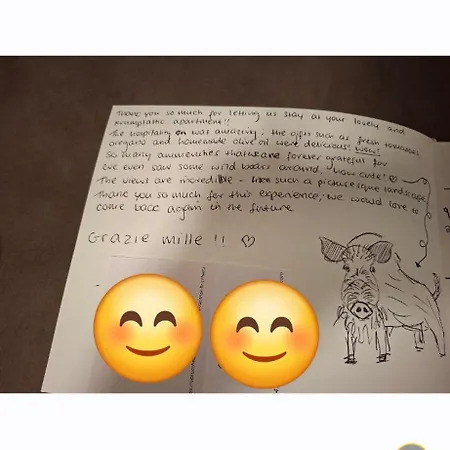 Thank you so much for letting us stay at your lovely and
xxumptastic apartment!!
The hospitality was amazing; the gifts such as fresh tomatoes,
oregano and homemade olive oil were delicious! wow!
So many ammenities thatweare forever grateful for
we even saw some wild boars around, how cute! ♡
The views are incredible - such a picturesque landscape
Thank you so much for this experience, we would love to
come back again in the future
Grazie mille!! ♡